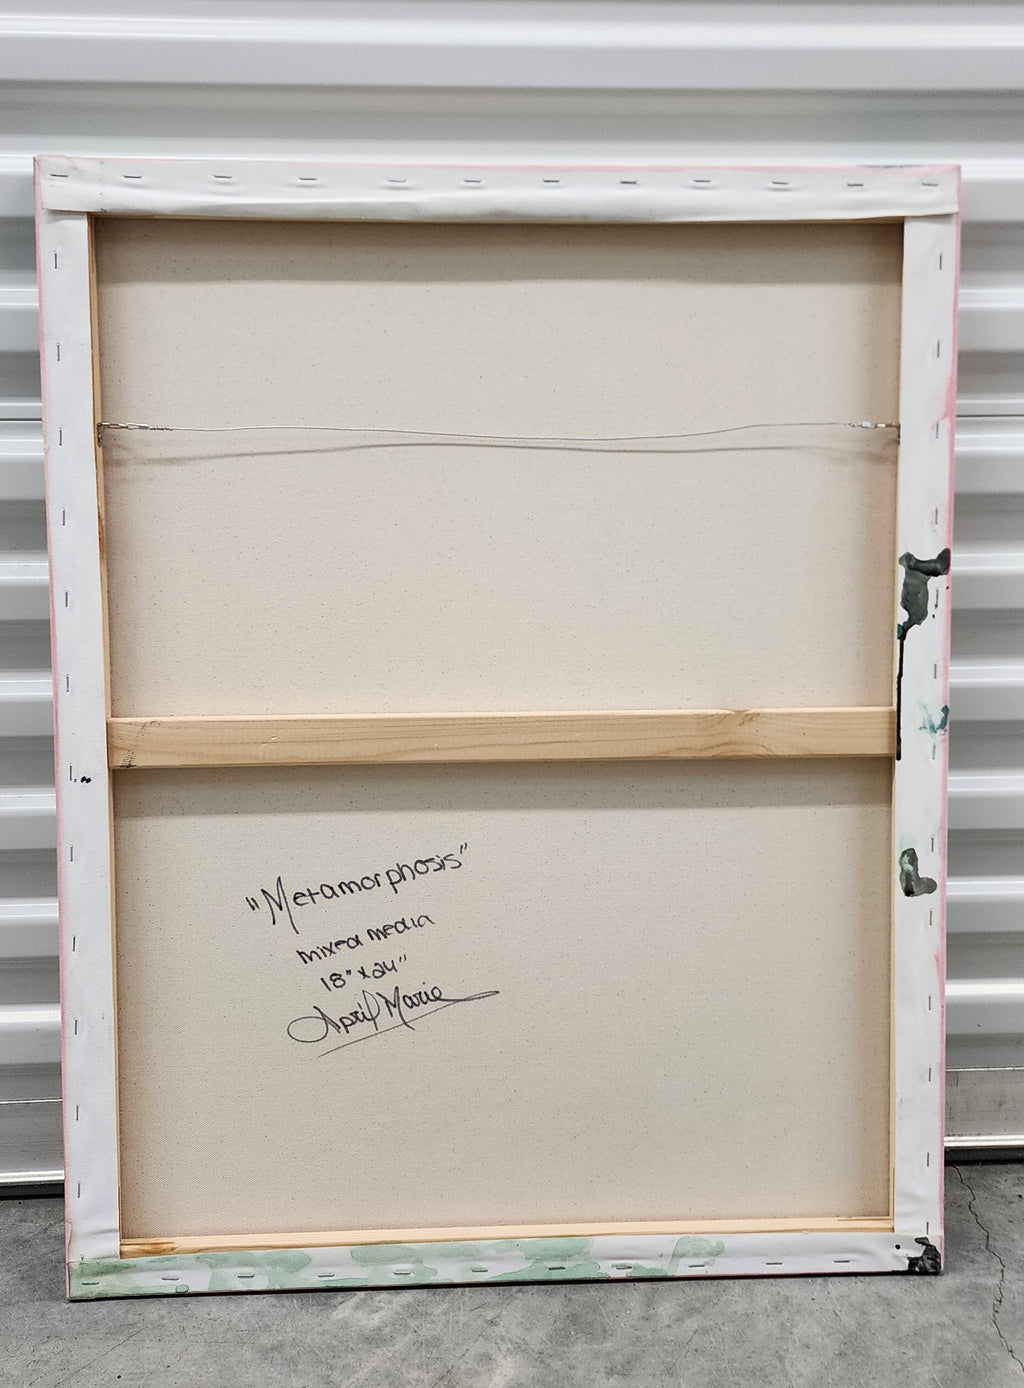 "Metamorphosis"
mixed media
18" x 24"
April Marie